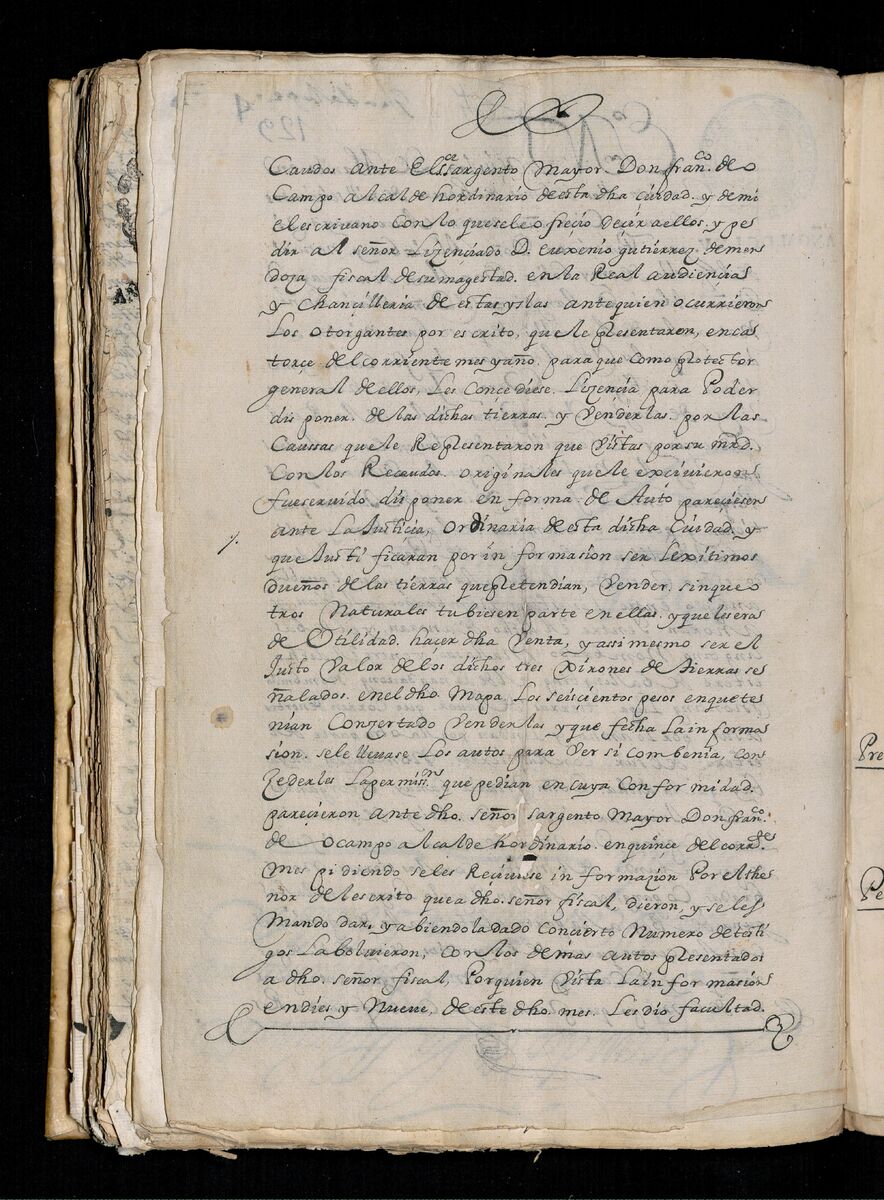 Caudos ante Els.ce sargento Mayor. Don fran.co de o
Campo alcalde hordinario desta dha ciudad. y demi
el escrivano con lo que sele ofrecio decir a ellos, y pe
dir al señor Lizenciado D. euxenio gutierrez demen
doza fiscal desumagestad. en la Real audiencia
y chançilleria de estas yslas ante quien ocurrieron
Los otorgantes por escrito, que le presentaron, en ca
torçe del corriente mes y año. para que como protector
general de ellos, Les conçediese. Lizençia para Poder
disponer. de las dichas tierras. y Venderlas. por las
Caussas que le Representaron que Vistas por su mrd.
Con los Recaudos. originales que le exciuieron
fue servido disponer en forma. de Auto pareçiesen
ante La Justicia, ordinaria de esta dicha Ciudad. y
que Justificaran por informasion ser Lexitimos
Dueños de las tierras que pretendian, Vender. sin que o
tros Naturales tubiesen parte en ellas. y que les era
de Utilidad. haçer dha Venta, y assi mesmo ser el
Justo Valor de los dichos tres Xirones de tierras se
ñalados. en el dho. Mapa Los seisçientos pesos en que te
nian Conzertado Venderlas y que fecha La informa
sion. se le lleuase Los autos para Ver si combenia, con
zederles La permiss.on que pedian en cuya Conformidad.
pareçieron ante dho. señor sargento Mayor Don fran.co
de ocampo alcalde hordinario. en quinçe del corr.te
mes pidiendo se les Reciuiese informazion Por el the
nor del escrito que a dho. señor fiscal, dieron, y se les
Mando dar, y abiendola dado Con cierto Numero de testi
gos La boluieron, con los demas autos presentados
a dho. señor fiscal, Por quien Vista La informasion
en dies y Nueve, de este dho. mes. Les dio facultad.